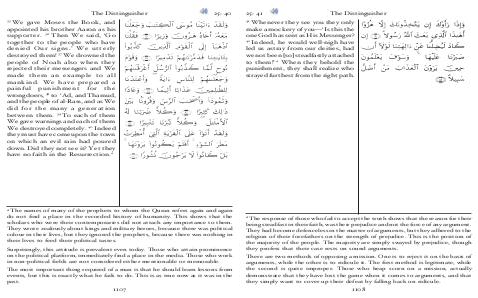 The Distinguisher
25: 40
³⁵ We gave Moses the Book, and
appointed his brother Aaron as his
supporter. ³⁶ Then We said, 'Go
together to the people who have
denied Our signs.' We utterly
destroyed them! ³⁷ We drowned the
people of Noah also when they
rejected their messengers and We
made them an example to all
mankind. We have prepared a
painful punishment for the
wrongdoers, ³⁸ to 'Ad, and Thamud,
and the people of al-Rass, and as We
did for the many a generation
between them. ³⁹ To each of them
We gave warnings and each of them
We destroyed completely. ⁴⁰ Indeed
they must have come upon the town
on which an evil rain had poured
down. Did they not see it? Yet they
have no faith in the Resurrection.ᵃ
وَلَقَدْ ءَاتَيْنَا مُوسَى الْكِتَابَ وَجَعَلْنَا
مَعَهُ أَخَاهُ هَارُونَ وَزِيرًا فَقُلْنَا
اذْهَبَا إِلَى الْقَوْمِ الَّذِينَ كَذَّبُوا
بِآيَاتِنَا فَدَمَّرْنَاهُمْ تَدْمِيرًا وَقَوْمَ
نُوحٍ لَمَّا كَذَّبُوا الرُّسُلَ أَغْرَقْنَاهُمْ
وَجَعَلْنَاهُمْ لِلنَّاسِ ءَايَةً وَأَعْتَدْنَا
لِلظَّالِمِينَ عَذَابًا أَلِيمًا وَعَادًا
وَثَمُودَا وَأَصْحَابَ الرَّسِّ وَقُرُونًا بَيْنَ
ذَلِكَ كَثِيرًا وَكُلًّا ضَرَبْنَا لَهُ
الْأَمْثَالَ وَكُلًّا تَبَّرْنَا تَتْبِيرًا
وَلَقَدْ أَتَوْا عَلَى الْقَرْيَةِ الَّتِي أُمْطِرَتْ
مَطَرَ السَّوْءِ أَفَلَمْ يَكُونُوا يَرَوْنَهَا
بَلْ كَانُوا لَا يَرْجُونَ نُشُورًا
ᵃ The names of many of the prophets to whom the Quran refers again and again
do not find a place in the recorded history of humanity. This shows that the
scholars who were their contemporaries did not attach any importance to them.
They wrote zealously about kings and military heroes, because there was political
colour in their lives, but they ignored the prophets, because there was nothing in
their lives to feed their political tastes.
Surprisingly, this attitude is prevalent even today. Those who attain prominence
on the political platform, immediately find a place in the media. Those who work
in non-political fields are not considered to be mentionable or memorable.
The most important thing required of a man is that he should learn lessons from
events, but this is exactly what he fails to do. This is as true now as it was in the
past.
1107
25: 41
The Distinguisher
⁴¹ Whenever they see you they only
make a mockery of you—'Is this the
one God has sent as His Messenger?
⁴² Indeed, he would well-nigh have
led us astray from our deities, had
we not been [so] steadfastly attached
to them!'ᵃ When they behold the
punishment, they shall realize who
strayed furthest from the right path.
وَإِذَا رَأَوْكَ إِنْ يَتَّخِذُونَكَ إِلَّا هُزُوًا
أَهَذَا الَّذِي بَعَثَ اللَّهُ رَسُولًا إِنْ
كَادَ لَيُضِلُّنَا عَنْ ءَالِهَتِنَا لَوْلَا أَنْ
صَبَرْنَا عَلَيْهَا وَسَوْفَ يَعْلَمُونَ
حِينَ يَرَوْنَ الْعَذَابَ مَنْ أَضَلُّ
سَبِيلًا
ᵃ The response of those who fail to accept the truth shows that the reason for their
being steadfast in their dark, was the prejudice and not the force of any argument.
They had become defenceless in the matter of arguments, but they adhered to the
religion of their forefathers on the strength of prejudice. This is the position of
the majority of the people. The majority are simply swayed by prejudice, though
they profess that their case rests on sound arguments.
There are two methods of opposing a mission. One is to reject it on the basis of
arguments, while the other is to ridicule it. The first method is legitimate, while
the second is quite improper. Those who heap scorn on a mission, actually
demonstrate that they have lost the game when it comes to arguments, and that
they simply want to cover up their defeat by falling back on ridicule.
1108